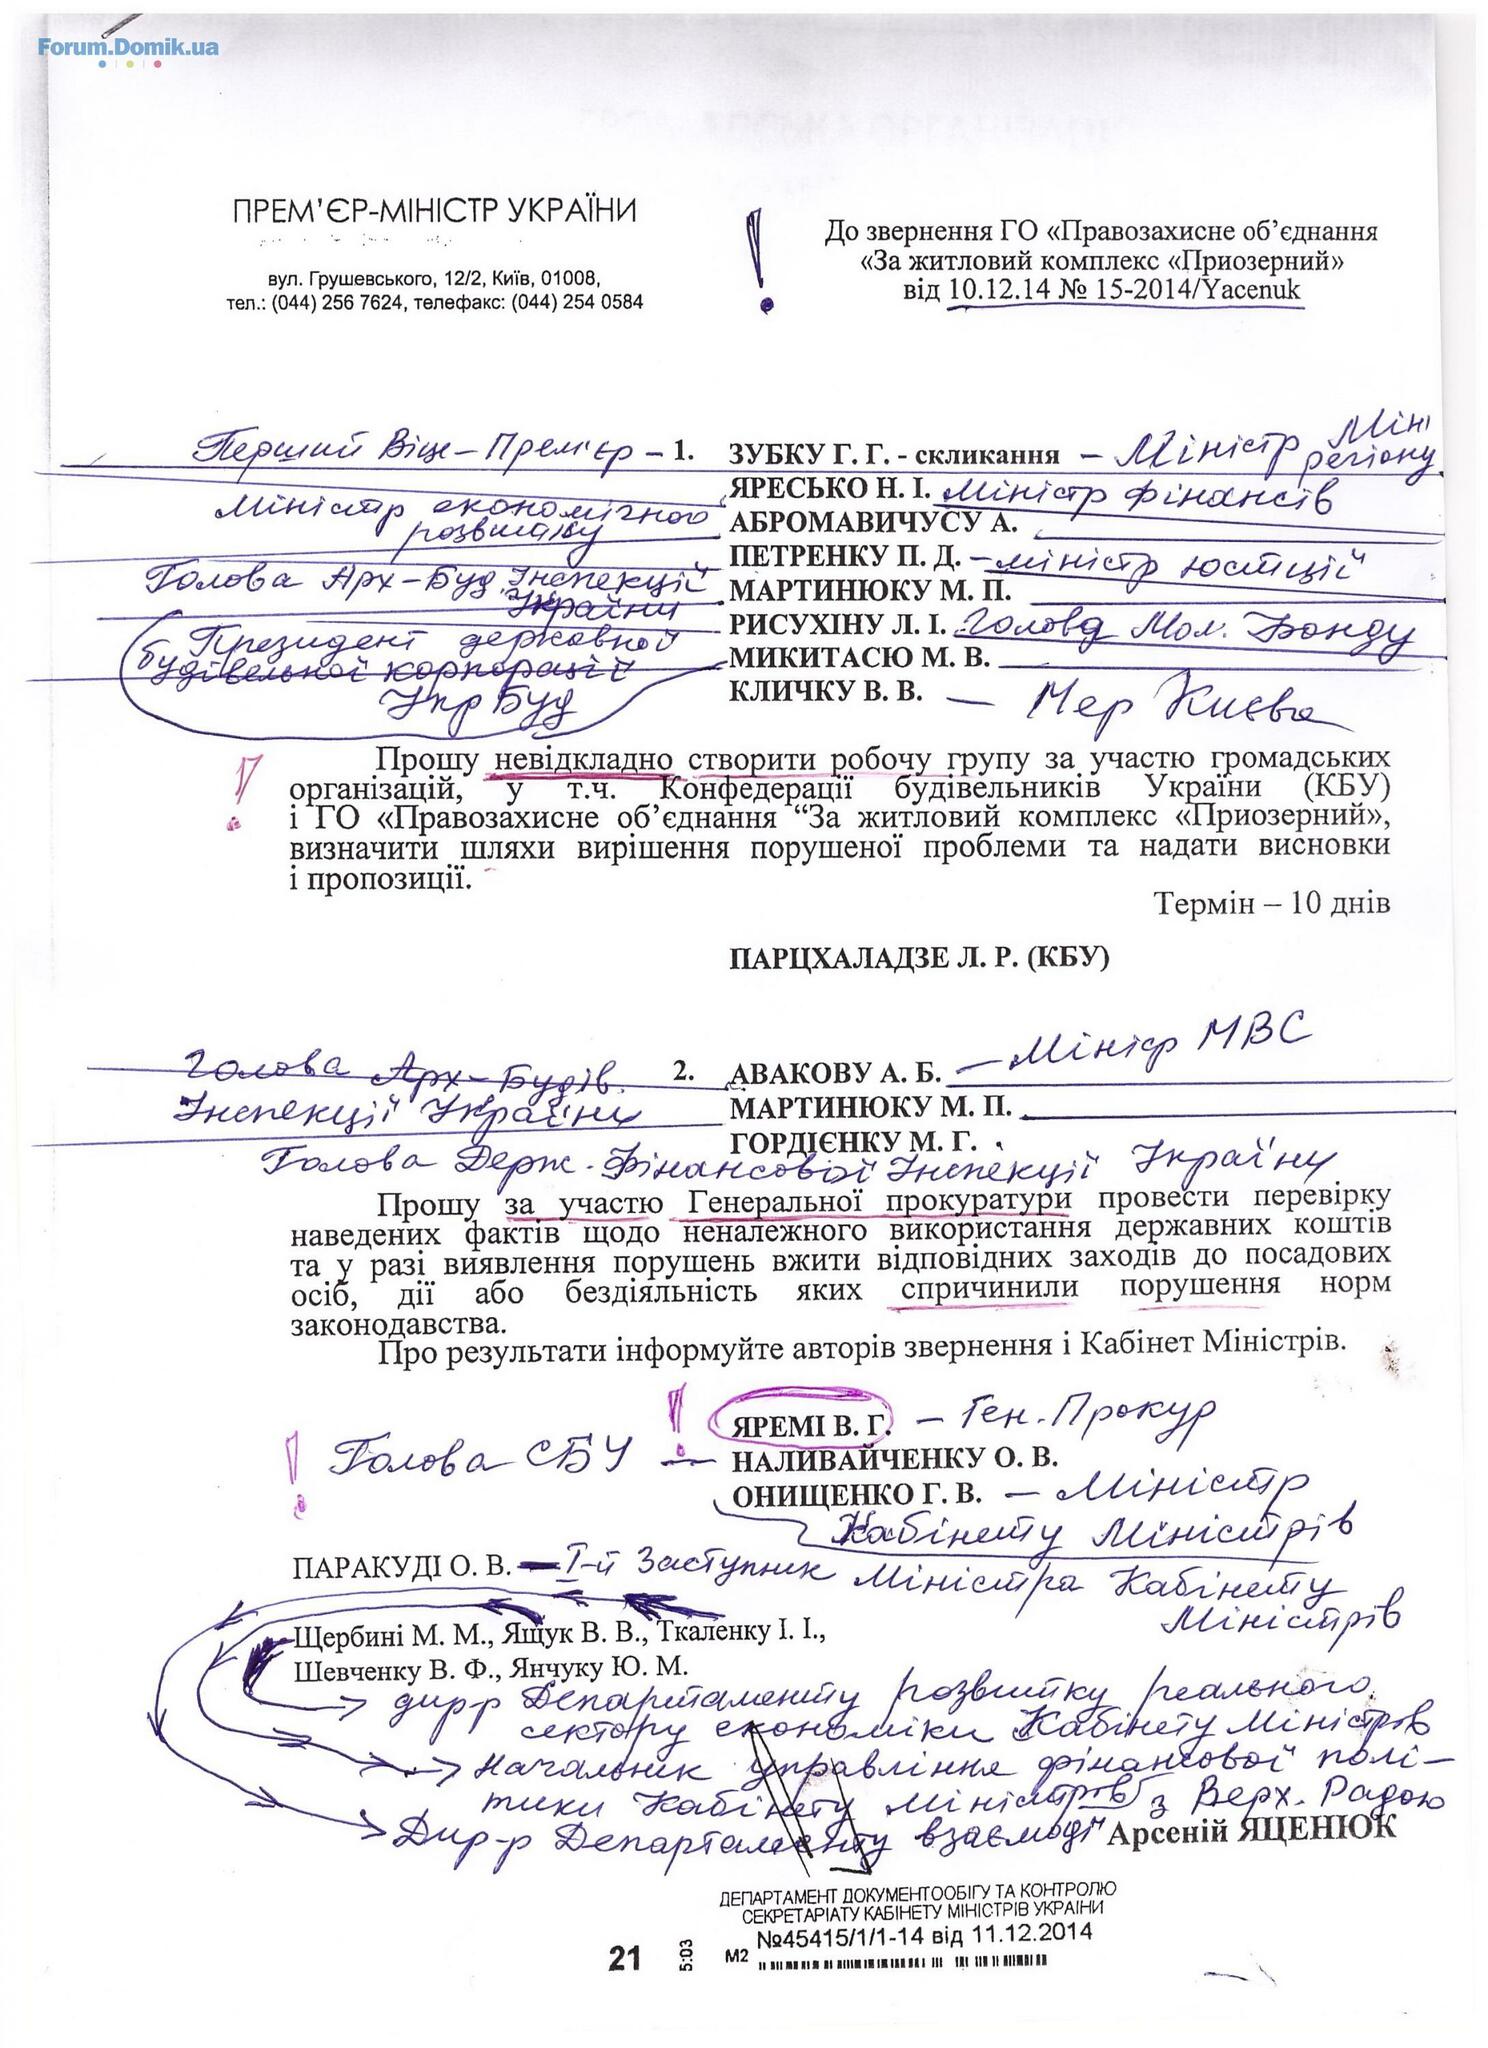 Forum.Domik.ua
ПРЕМ’ЄР-МІНІСТР УКРАЇНИ
вул. Грушевського, 12/2, Київ, 01008,
тел.: (044) 256 7624, телефакс: (044) 254 0584
!
До звернення ГО «Правозахисне об’єднання
«За житловий комплекс «Приозерний»
від 10.12.14 № 15-2014/Yacenuk
Перший Віце-Прем'єр – 1. ЗУБКУ Г. Г. - скликання – Міністр Міні
регіону
ЯРЕСЬКО Н. І. Міністр фінансів
Міністр економічного
розвитку
АБРОМАВИЧУСУ А.
ПЕТРЕНКУ П. Д. – міністр юстицій
Голова Арх-Буд. Інспекцій
України
МАРТИНЮКУ М. П.
РИСУХІНУ Л. І. Голова Мол. Фонду
Президент державной
будівельной корпорації
УкрБуд
МИКИТАСЮ М. В.
КЛИЧКУ В. В. – Мер Києва
! Прошу невідкладно створити робочу групу за участю громадських
організацій, у т.ч. Конфедерації будівельників України (КБУ)
і ГО «Правозахисне об’єднання “За житловий комплекс «Приозерний»,
визначити шляхи вирішення порушеної проблеми та надати висновки
і пропозиції.
Термін – 10 днів
ПАРЦХАЛАДЗЕ Л. Р. (КБУ)
2. АВАКОВУ А. Б. – Міністр МВС
Голова Арх-Будів.
Інспекції України
МАРТИНЮКУ М. П.
ГОРДІЄНКУ М. Г.
Голова Держ. Фінансової Інспекції України
Прошу за участю Генеральної прокуратури провести перевірку
наведених фактів щодо неналежного використання державних коштів
та у разі виявлення порушень вжити відповідних заходів до посадових
осіб, дії або бездіяльність яких спричинили порушення норм
законодавства.
Про результати інформуйте авторів звернення і Кабінет Міністрів.
! ЯРЕМІ В. Г. – Ген. Прокур
! Голова СБУ — НАЛИВАЙЧЕНКУ О. В.
ОНИЩЕНКО Г. В. – Міністр
Кабінету Міністрів
ПАРАКУДІ О. В. – I-й Заступник Міністра Кабінету
Міністрів
Щербині М. М., Ящук В. В., Ткаленку І. І.,
Шевченку В. Ф., Янчуку Ю. М.
дир-р Департаменту розвитку реального
сектору економіки Кабінету Міністрів
Начальник управління фінансової полі-
тики Кабінету Міністрів
Дир-р Департаменту взаємодії з Верх. Радою
Арсеній ЯЦЕНЮК
ДЕПАРТАМЕНТ ДОКУМЕНТООБІГУ ТА КОНТРОЛЮ
СЕКРЕТАРІАТУ КАБІНЕТУ МІНІСТРІВ УКРАЇНИ
№45415/1/1-14 від 11.12.2014
21 5:03 М2